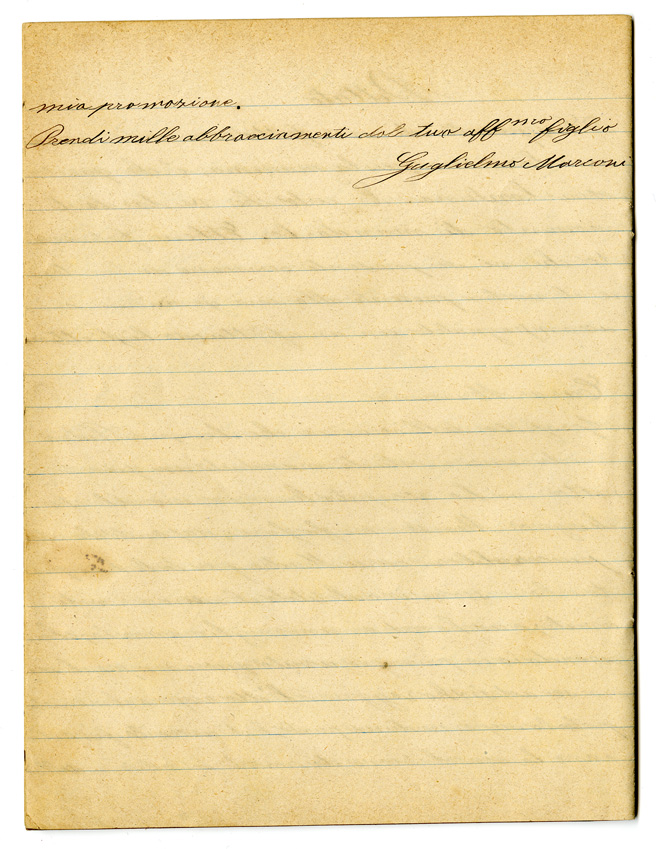 mia promozione.
Prendi mille abbracciamenti dal tuo aff.mo figlio
Guglielmo Marconi